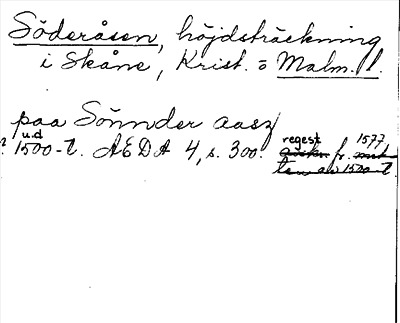 Söderåsen, höjdsträckning
i Skåne, Krist. o Malm. l.
paa Sönnder aasz
u.d
? 1500-t. AEDA 4, s. 300. regest fr. 1577
ten av 1500-t.